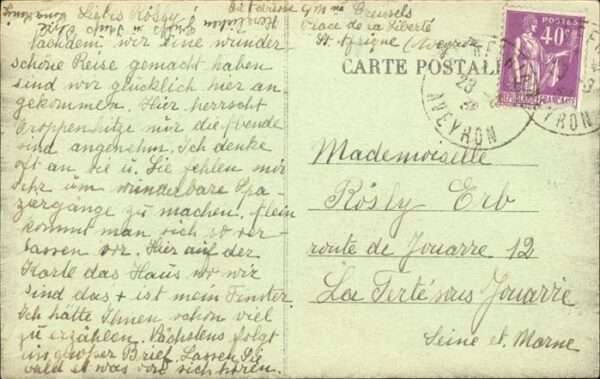 Liebes Rösly!
Nachdem wir eine wunder
schöne Reise gemacht haben
sind wir glücklich hier an-
gekommen. Hier herrscht
Troppenhitze nur die Abende
sind angenehm. Ich denke
oft an Sie u. Sie fehlen mir
sehr um wunderbare Spa-
zergänge zu machen. Allein
kommt man sich so ver-
lassen vor. Hier auf der
Karte das Haus wo wir
sind das + ist mein Fenster
Ich hätte Ihnen schon viel
zu erzählen. Nächstens folgt
ein großer Brief. Lassen Sie
bald etwas von sich hören.
Herzlichen
Gruß
Adresse
Place de la Liberté
St. Afrique (Aveyron)
CARTE POSTALE
POSTES
40c
RÉPUBLIQUE FRANÇAISE
23
AVEYRON
Mademoiselle
Rösly Erb
route de Jouarre 12
La Ferté sous Jouarre
Seine et Marne